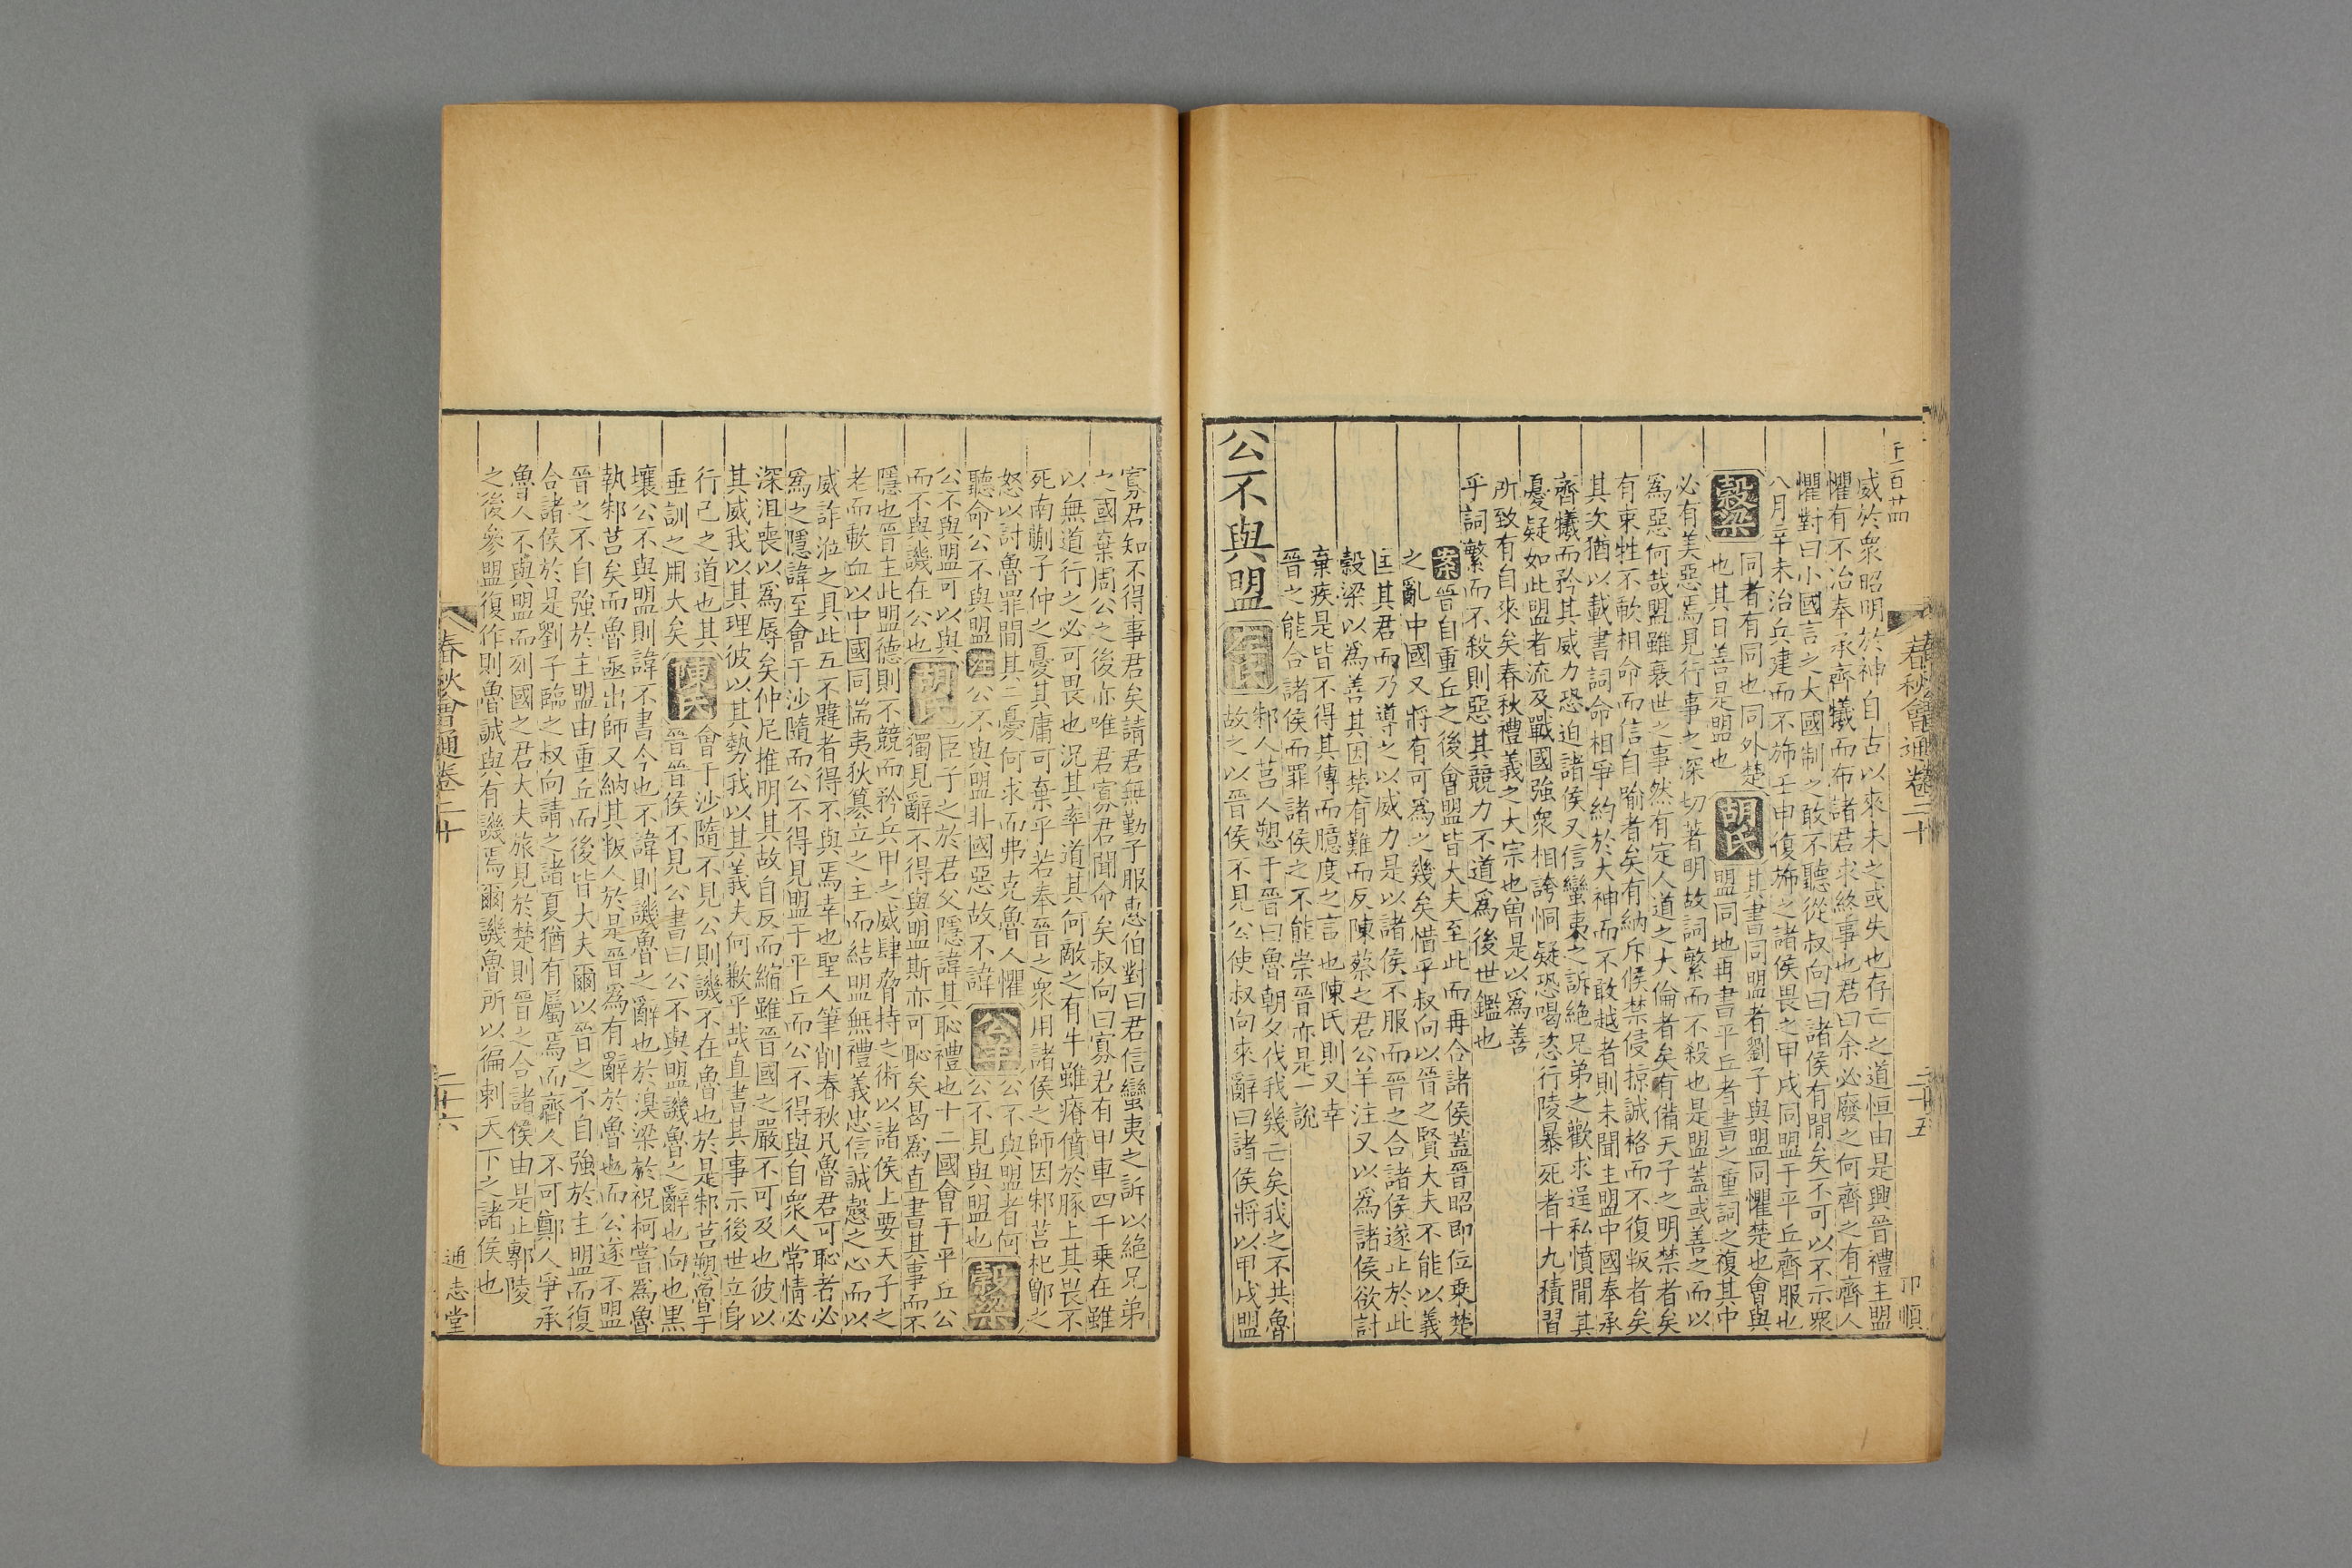 威於衆昭明於神自古以來未之或失也存亡之道恒由是興晉禮主盟
懼有不治奉承齊犧而布諸君求終事也君曰余必廢之何齊之有齊人
懼對曰小國言之大國制之敢不聽從叔向曰諸侯有閒矣不可以不示衆
八月辛未治兵建而不旆壬申復旆之諸侯畏之甲戌同盟于平丘齊服也
穀梁 同者有同也同外楚 胡氏 其書同盟者劉子與盟同懼楚也會與
也其日善是盟也 盟同地再書平丘者書之重詞之複其中
必有美惡焉見行事之深切著明故詞繁而不殺也是盟蓋或善之而以
爲惡何哉盟雖衰世之事然有定人道之大倫者矣有備天子之明禁者矣
有束牲不歃相命而信自喻者矣有納斥候禁侵掠誠格而不復叛者矣
其次猶以載書詞命相爭約於大神而不敢越者則未聞主盟中國奉承
齊犧而矜其威力恐迫諸侯又信蠻夷之訴絶兄弟之歡求逞私憤閒其
憂疑如此盟者流及戰國強衆相誇恫疑恐喝恣行陵暴死者十九積習
所致有自來矣春秋禮義之大宗也曾是以爲善
乎詞繁而不殺則惡其競力不道爲後世鑑也
案晉自重丘之後會盟皆大夫至此而再合諸侯蓋晉昭即位乗楚
之亂中國又將有可爲之幾矣惜乎叔向以晉之賢大夫不能以義
匡其君而乃導之以威力是以諸侯不服而晉之合諸侯遂止於此
穀梁以爲善其因楚有難而反陳蔡之君公羊注又以爲諸侯欲討
棄疾是皆不得其傳而臆度之言也陳氏則又幸
晉之能合諸侯而罪諸侯之不能崇晉亦是一說
公不與盟 左氏 邾人莒人愬于晉曰魯朝夕伐我幾亡矣我之不共魯
故之以晉侯不見公使叔向來辭曰諸侯將以甲戌盟
春秋會通卷二十
二十五
卭順
寡君知不得事君矣請君無勤子服惠伯對曰君信蠻夷之訴以絶兄弟
之國棄周公之後亦唯君寡君聞命矣叔向曰寡君有甲車四千乗在雖
以無道行之必可畏也況其率道其何敵之有牛雖瘠僨於豚上其畏不
死南蒯子仲之憂其庸可棄乎若奉晉之衆用諸侯之師因邾莒杞鄫之
怒以討魯罪閒其二憂何求而弗克魯人懼 公羊 公不與盟者何
聽命公不與盟 注 公不與盟非國惡故不諱 公不見與盟也 穀梁
公不與盟可以與 胡氏 臣子之於君父隱諱其恥禮也十二國會于平丘公
而不與譏在公也 獨見辭不得與盟斯亦可恥矣曷爲直書其事而不
隱也晉主此盟德則不競而矜兵甲之威肆脅持之術以諸侯上要天子之
老而歃血以中國同惴夷狄篡立之主而結盟無禮義忠信誠慤之心而以
威詐涖之具此五不韙者得不與焉幸也聖人筆削春秋凡魯君可恥者必
爲之隱諱至會于沙隨而公不得見盟于平丘而公不得與自衆人常情必
深沮喪以爲辱矣仲尼推明其故自反而縮雖晉國之嚴不可及也彼以
其威我以其理彼以其勢我以其義夫何歉乎哉直書其事示後世立身
行己之道也其 陳氏 會于沙隨不見公則譏不在魯也於是邾莒愬魯于
垂訓之用大矣 晉晉侯不見公書曰公不與盟譏魯之辭也向也黒
壤公不與盟則諱不書今也不諱則譏魯之辭也於溴梁於祝柯嘗爲魯
執邾莒矣而魯亟出師又納其叛人於是晉爲有辭於魯也而公遂不盟
晉之不自強於主盟由重丘而後皆大夫爾以晉之不自強於主盟而復
合諸侯於是劉子臨之叔向請之諸夏猶有屬焉而齊人不可鄭人爭承
魯人不與盟而刻國之君大夫旅見於楚則晉之合諸侯由是止鄟陵
之後參盟復作則魯誠與有譏焉爾譏魯所以徧刺天下之諸侯也
春秋會通卷二十
二十六
通志堂